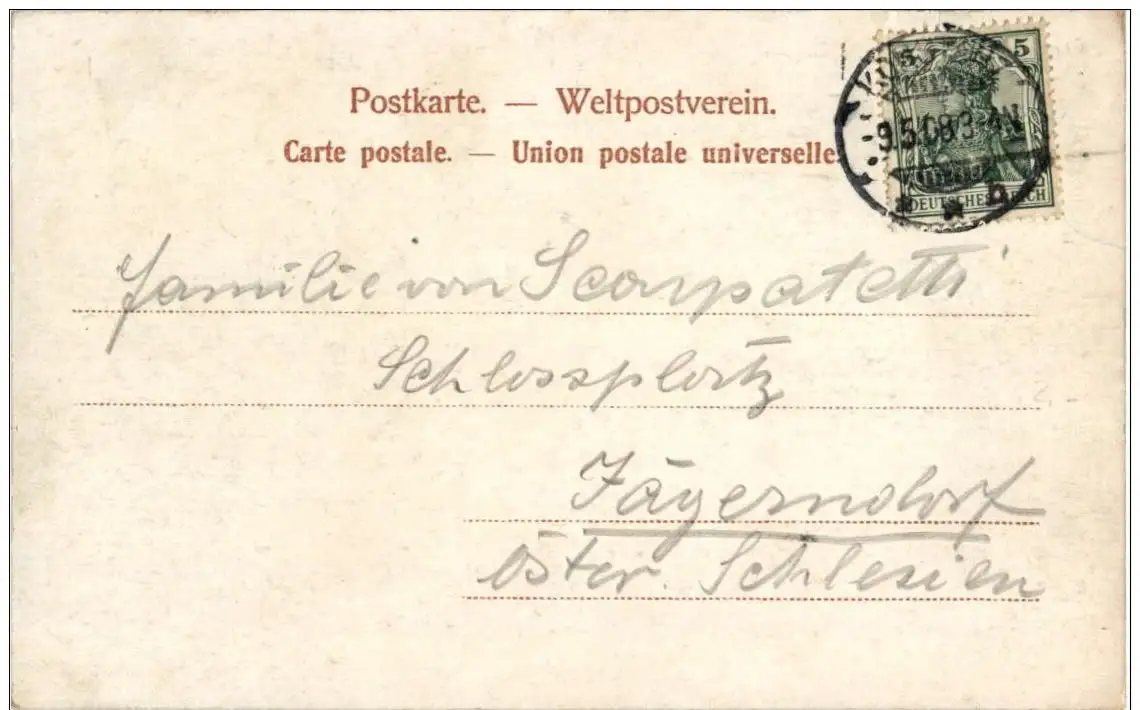 Postkarte. — Weltpostverein.
Carte postale. — Union postale universelle.
5 5
9.5.08 3-4N
DEUTSCHES REICH
Familie von Scarpatetti
Schlossplatz
Jägerndorf
Öster. Schlesien